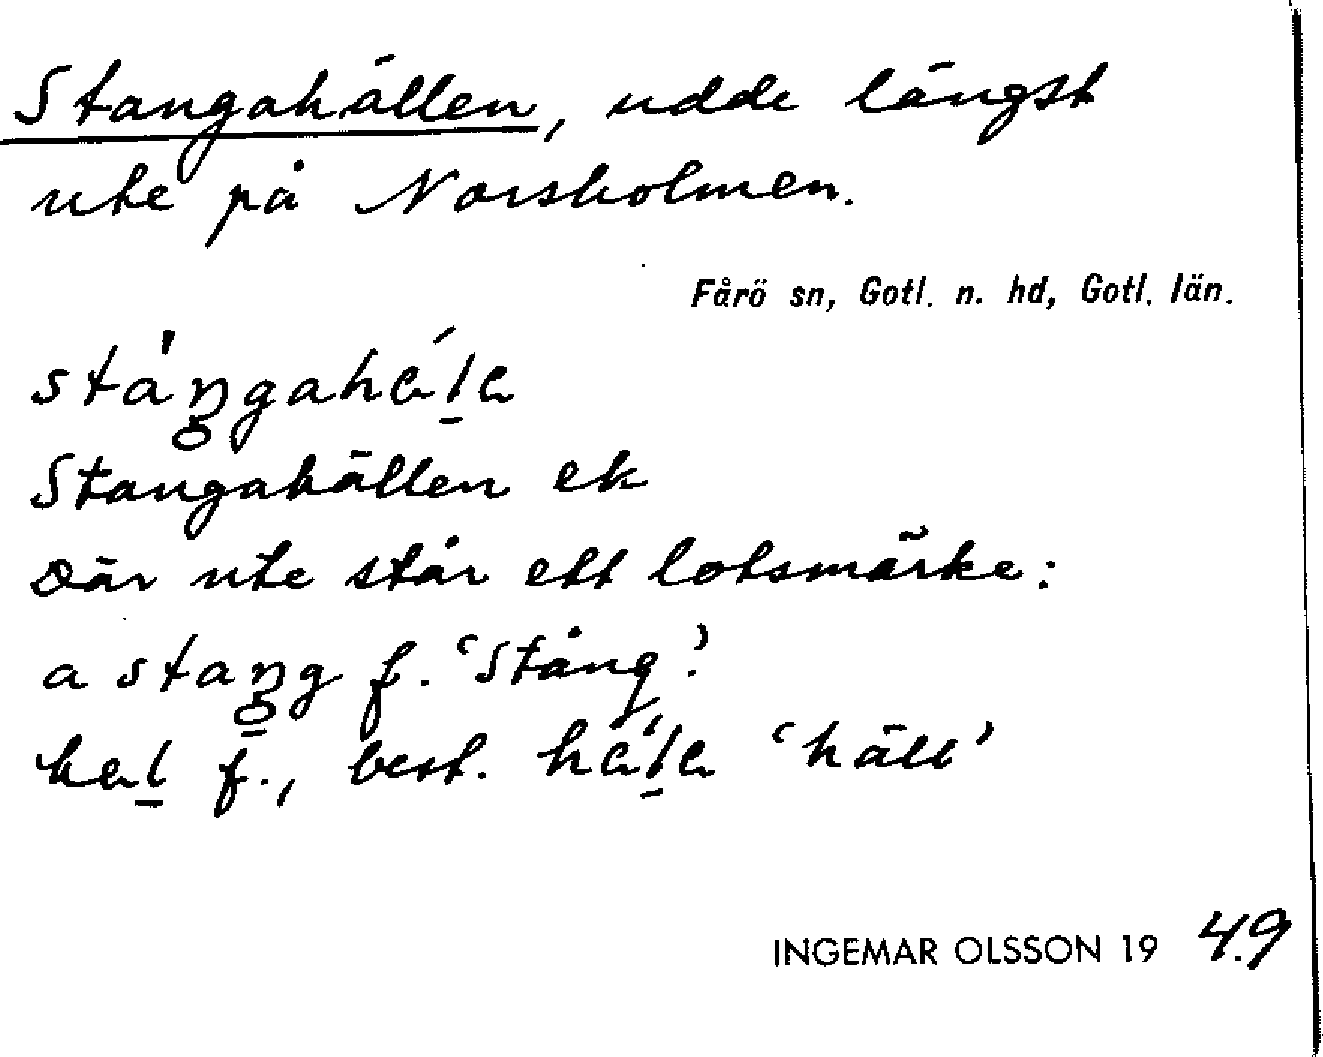 Stangahällen, udde längst
ute på Norsholmen.
Fårö sn, Gotl. n. hd, Gotl. län.
Stangahällen ek
Där ute står ett lotsmärke:
a stang f. 'Stång'.
hal f., best. 'häll'
INGEMAR OLSSON 19 49